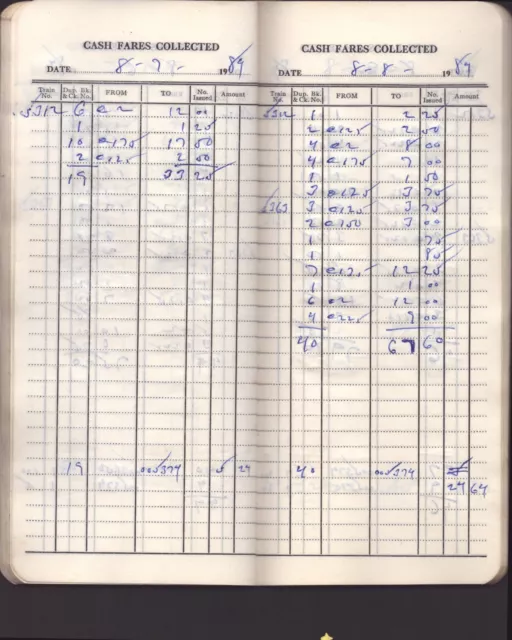 CASH FARES COLLECTED
DATE 8-7- 1989
Train No. Dup. Bk. & Ck. No. FROM TO No. Issued Amount
5312 6 @2 12 00
1 1 25
10 @175 17 50
2 @125 2 50
19 33 25
19 5 29
CASH FARES COLLECTED
DATE 8-8- 1989
Train No. Dup. Bk. & Ck. No. FROM TO No. Issued Amount
5312 1 2 25
2 @125 2 50
4 @2 8 00
4 @175 7 00
1 1 50
3 @125 3 75
3 @125 3 75
2 @150 3 00
1 75
1 85
7 @175 12 25
1 1 00
6 @2 12 00
4 @225 9 00
40 67 60
40